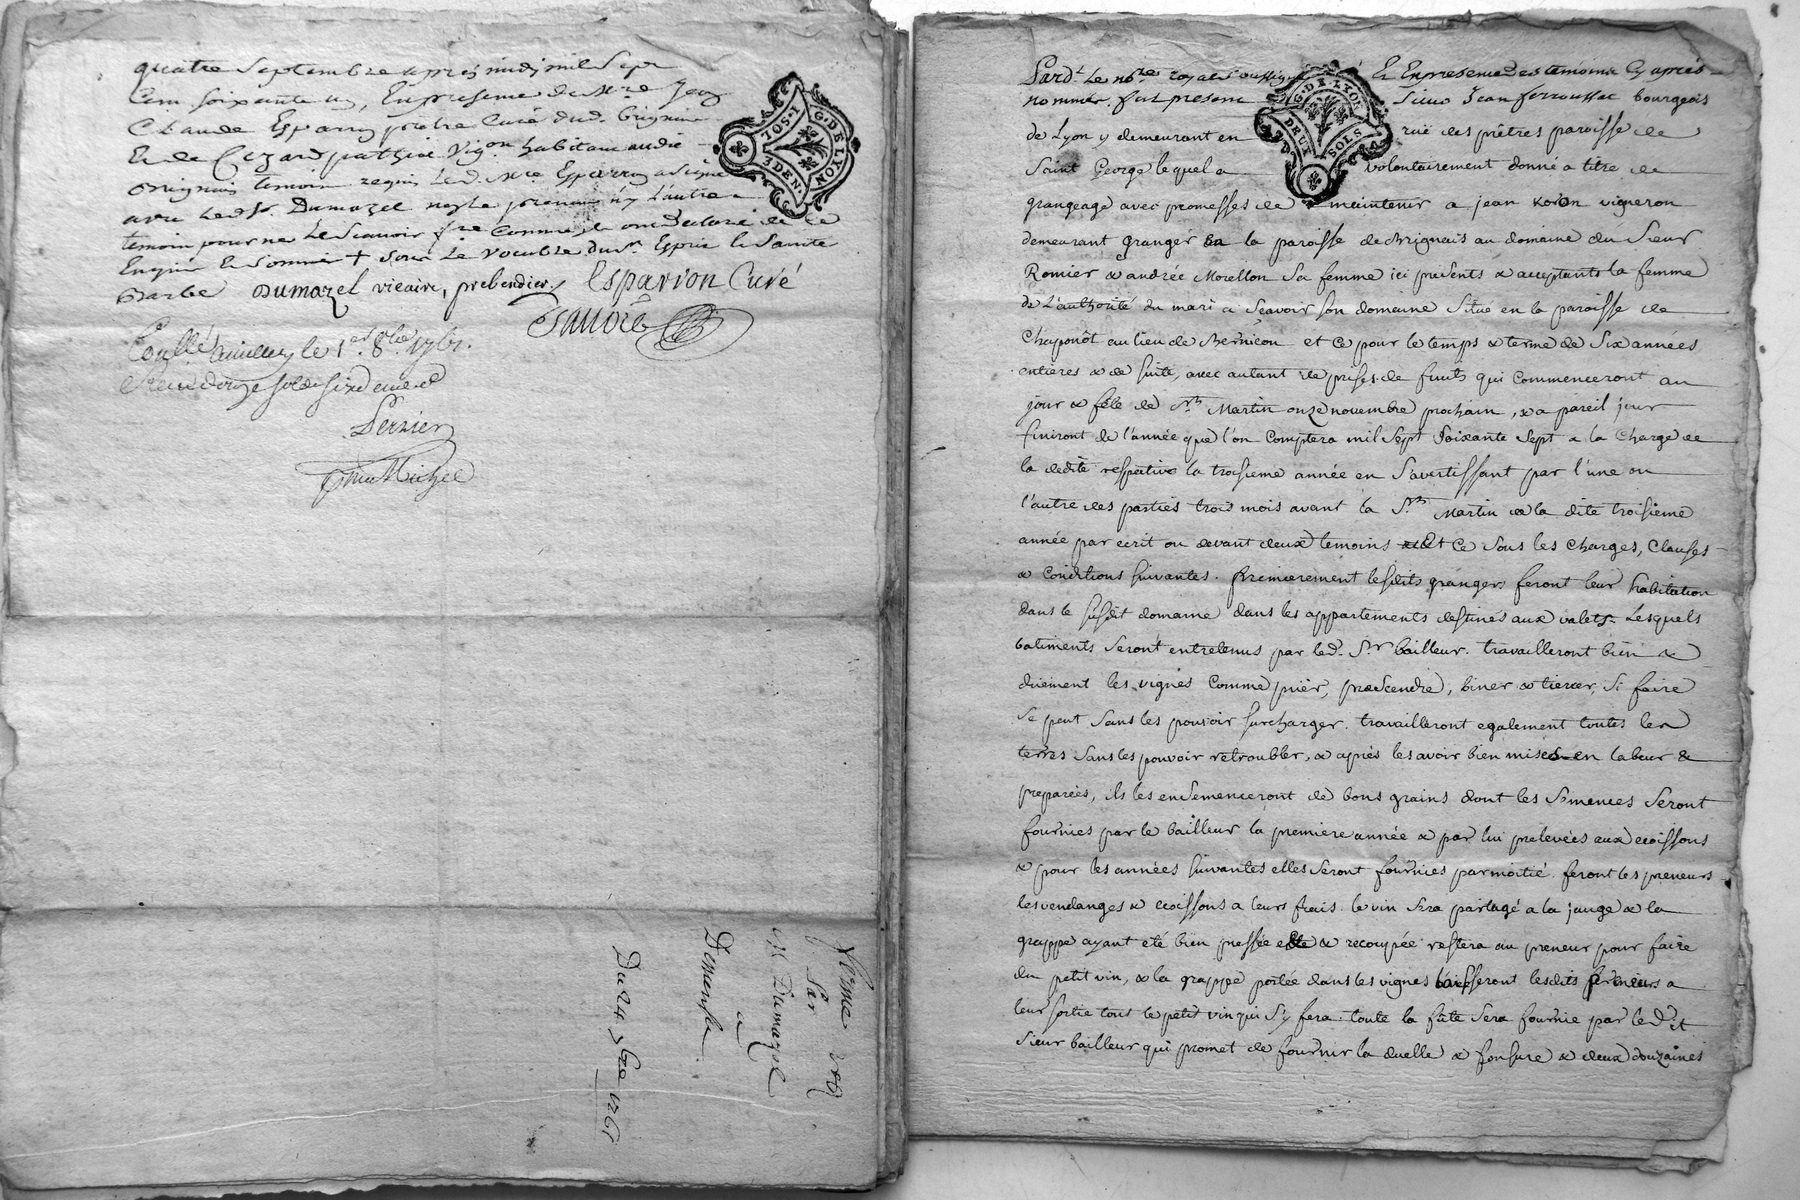 quatre Septembre après midy mil Sept
Cent Soixante un, En presence de Mre Jean
Claude Esparron prêtre Curé dud. Brignais
Et de habitant audit
Brignais temoin requis Led. Mre Esparron a Signé
avec Led. Sr. Dumazel non le preneur n'y L'autre
temoin pour ne Le Scavoir fre Comme ils ont Declaré de ce
Enquis Et Sommés + Sous Le vocable du St Esprit Et Sainte
Barbe Dumazel vicaire, prebendier. Esparron Curé
1 SOL
G. DE LYON
3 DEN.
le 1er 8bre 1761.
Reçu douze sols six deniers
Ferme
Par
Mr Dumazel
a
Du 24 1761
Pard.t Le nore royal soussigné Et En presence des temoins Cy après
nommés. fut present Sieur Jean ferroussac bourgeois
de Lyon y demeurant en ruë des prêtres paroisse de
Saint George lequel a volontairement donné a titre de
grangeage avec promesses de maintenir a jean vigneron
demeurant granger En la paroisse de Brignais au domaine du Sieur
Romier & andrée Morellon Sa femme ici presents & acceptants la femme
de L'authorité du mari a Scavoir Son domaine Situé en la paroisse de
Chaponôt au lieu de et ce pour le temps & terme de Six années
entieres & de Suite, avec autant de prises de fruits qui Commenceront au
jour & fête de St. Martin onze novembre prochain, & a pareil jour
finiront de l'année que l'on Comptera mil Sept Soixante Sept a la Charge de
la dedite respective la troisieme année en S'avertissant par l'une ou
l'autre des parties trois mois avant la St. Martin de la dite troisieme
année par ecrit ou devant deux temoins Et Ce Sous les Charges, Clauses
& Conditions Suivantes. Premierement lesdits grangers feront leur habitation
dans le Susdit domaine dans les appartements destinés aux valets. Lesquels
batiments Seront entretenus par led. S.r bailleur. travailleront bien &
düement les vignes Comme biner & tiercer, Si faire
Se peut Sans les pouvoir Surcharger. travailleront egalement toutes les
terres Sans les pouvoir retroubler, & après les avoir bien mises en labeur &
preparées, ils les ensemenceront de bons grains dont les Semences Seront
fournies par le bailleur la premiere année & par lui prelevées aux ecoissons
& pour les années Suivantes elles Seront fournies par moitié. feront les preneurs
les vendanges & ecoissons a leurs frais. le vin Sera partagé a la jauge & la
grappe ayant eté bien pressée & recoupée restera au preneur pour faire
du petit vin, & la grappe portée dans les vignes laisseront lesdits preneurs a
leur Sortie tout le petit vin qui S'y fera. toute la fute Sera fournie par led.it
Sieur bailleur qui promet de fournir la duelle & fonsure & deux douzaines
G. DE LYON
DEUX SOLS